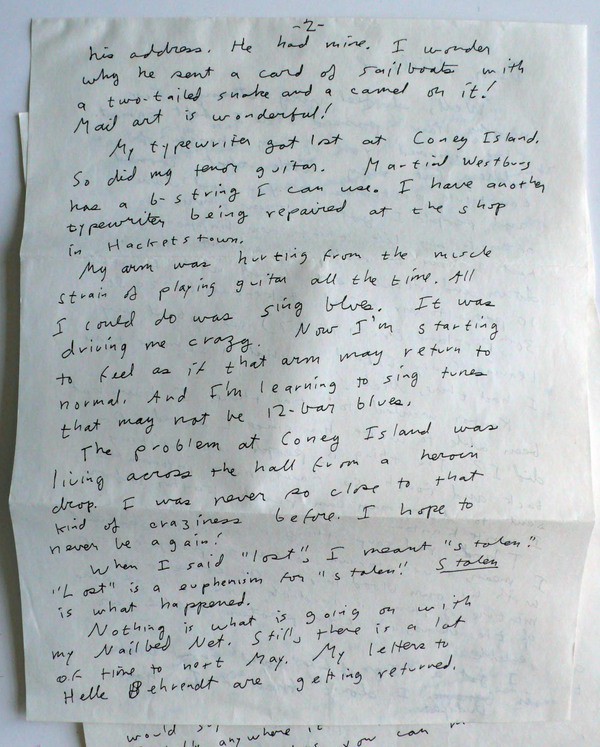 -2-
his address. He had mine. I wonder
why he sent a card of sailboats with
a two-tailed snake and a camel on it!
Mail art is wonderful!
My typewriter got lost at Coney Island.
So did my tenor guitar. Martial Westburg
has a b-string I can use. I have another
typewriter being repaired at the shop
in Hacketstown.
My arm was hurting from the muscle
strain of playing guitar all the time. All
I could do was sing blues. It was
driving me crazy. Now I'm starting
to feel as if that arm may return to
normal. And I'm learning to sing tunes
that may not be 12-bar blues.
The problem at Coney Island was
living across the hall from a heroin
drop. I was never so close to that
kind of craziness before. I hope to
never be again!
When I said "lost", I meant "stolen".
"Lost" is a euphenism for "stolen!" Stolen
is what happened.
Nothing is what is going on with
my Nailbed Net. Still, there is a lot
of time to next May. My letters to
Helle Behrendt are getting returned.
would
anywhere it
you can